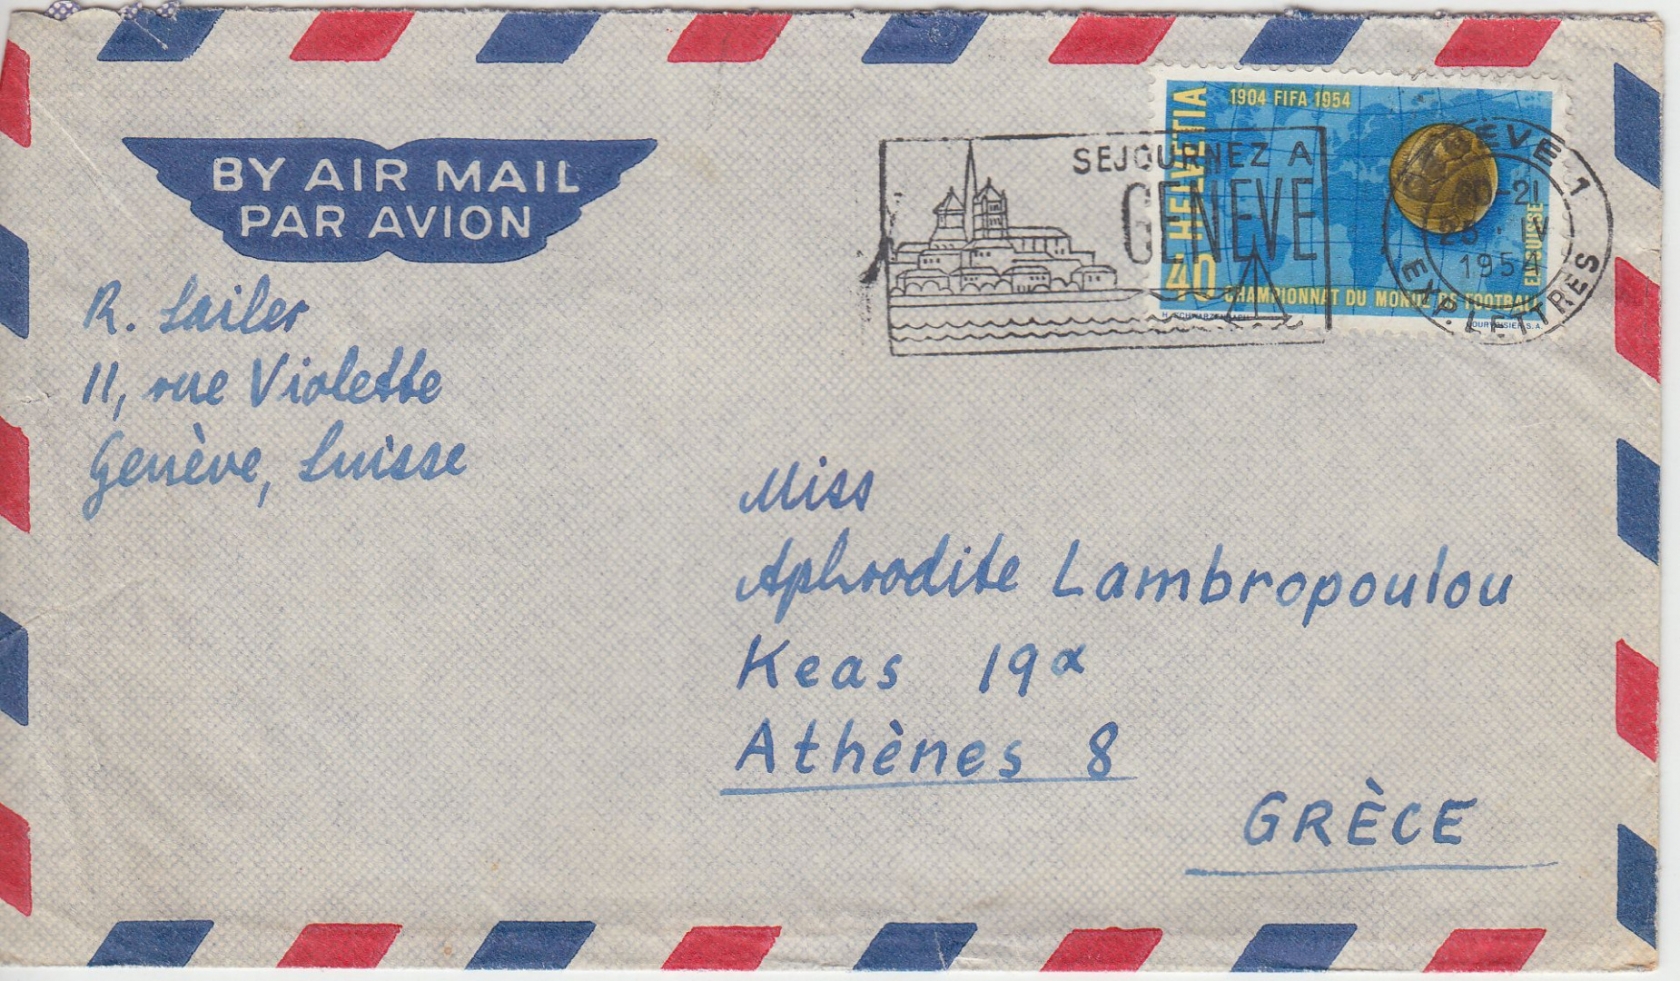 BY AIR MAIL
PAR AVION
R. Sailer
11, rue Violette
Genève, Suisse
SEJOURNEZ A
GENEVE
HELVETIA
1904 FIFA 1954
40
CHAMPIONNAT DU MONDE DE FOOTBALL
EN SUISSE
COURVOISIER S.A.
GENÈVE 1
20-21
IV
1954
EXP. LETTRES
Miss
Aphrodite Lambropoulou
Keas 19α
Athènes 8
GRÈCE